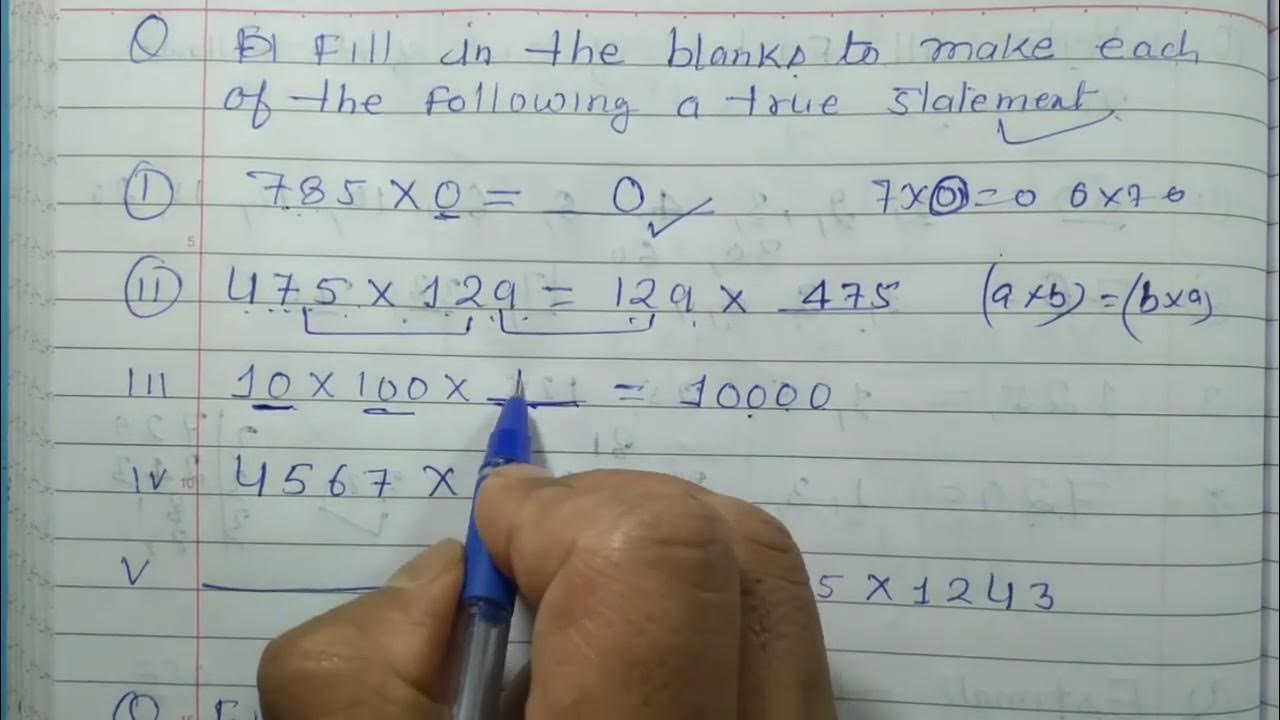 Q B) Fill in the blanks to make each
of the following a true statement
I 785 × 0 = 0 7×0=0 0×7=0
II 475 × 129 = 129 × 475 (a×b) = (b×a)
III 10 × 100 × 1 = 10000
IV 4567 ×
V 5 × 1243
Q